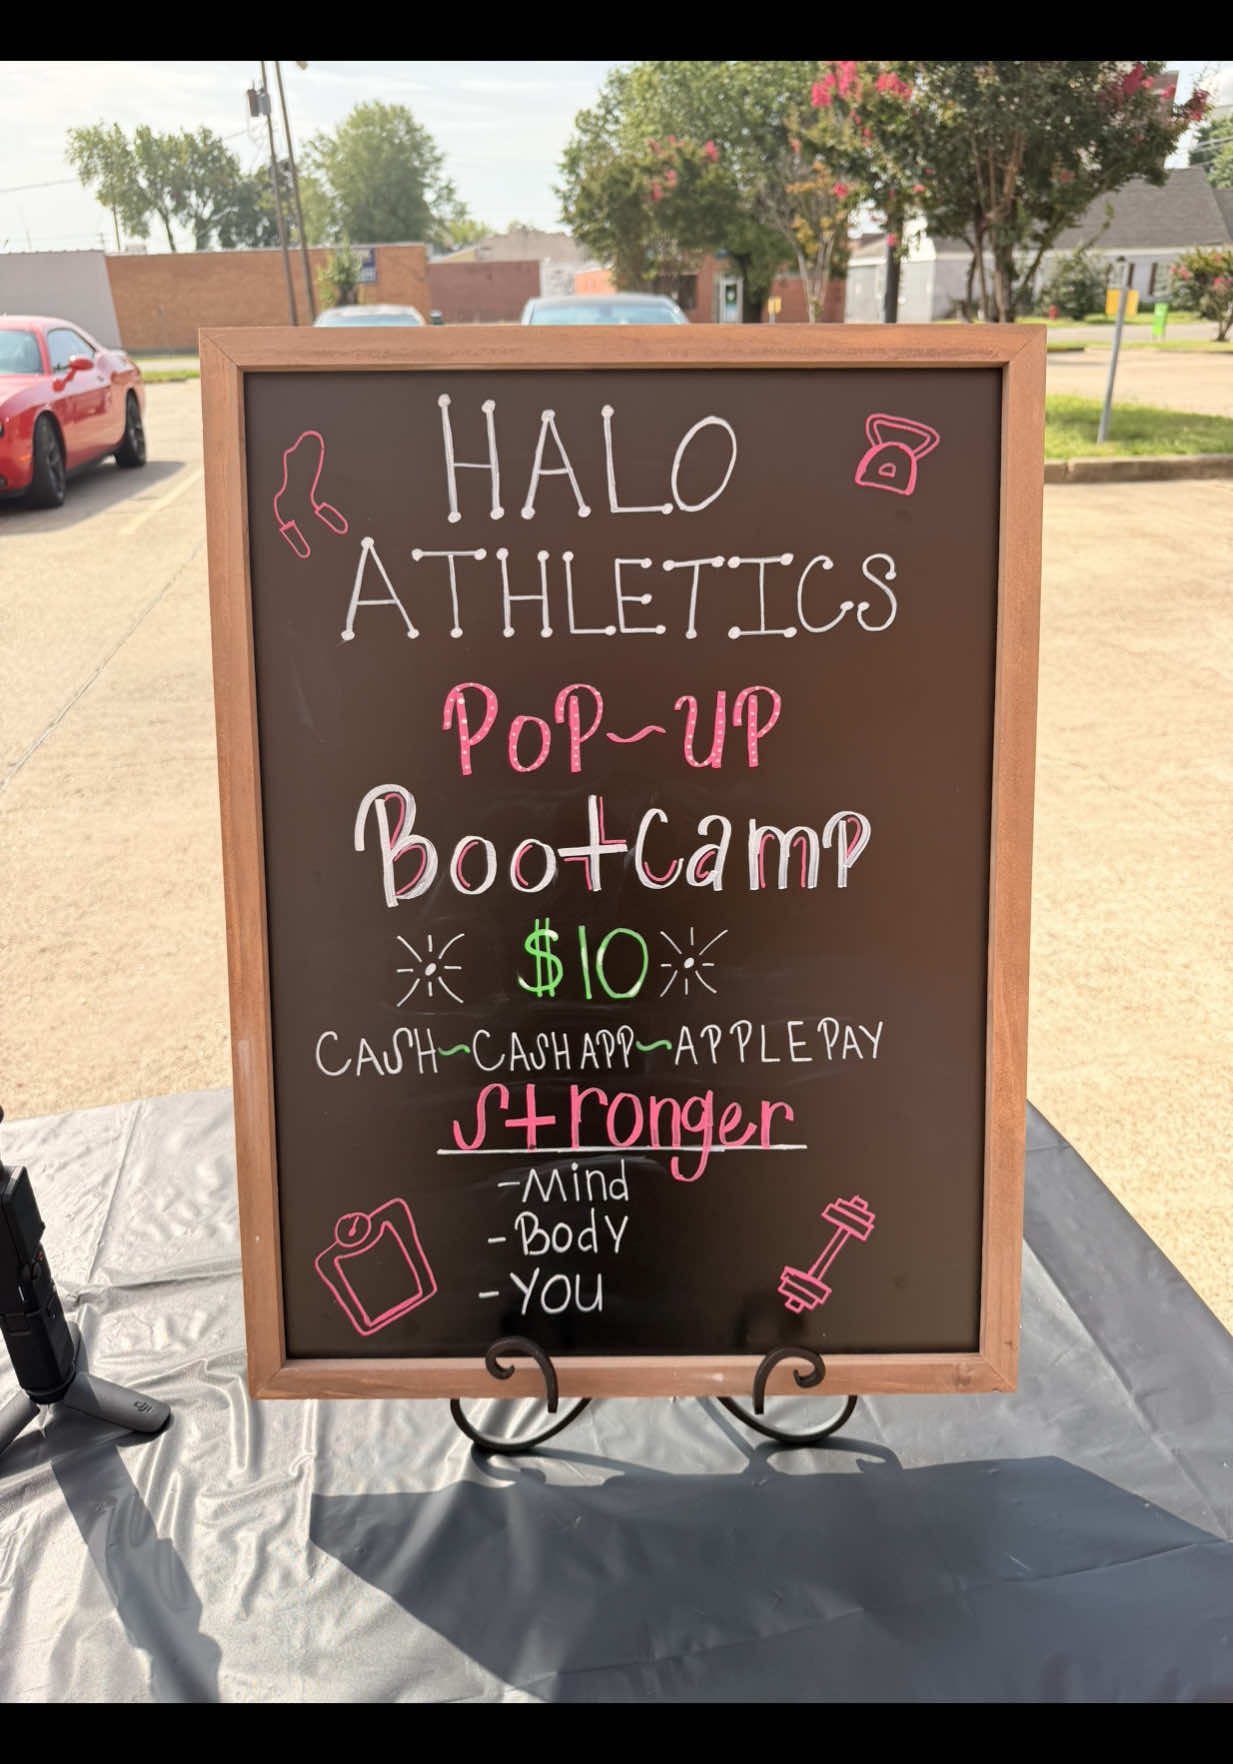 HALO
ATHLETICS
POP~UP
BootCamp
$10
CASH~CASHAPP~APPLE PAY
Stronger
-Mind
-Body
-YOU
dji